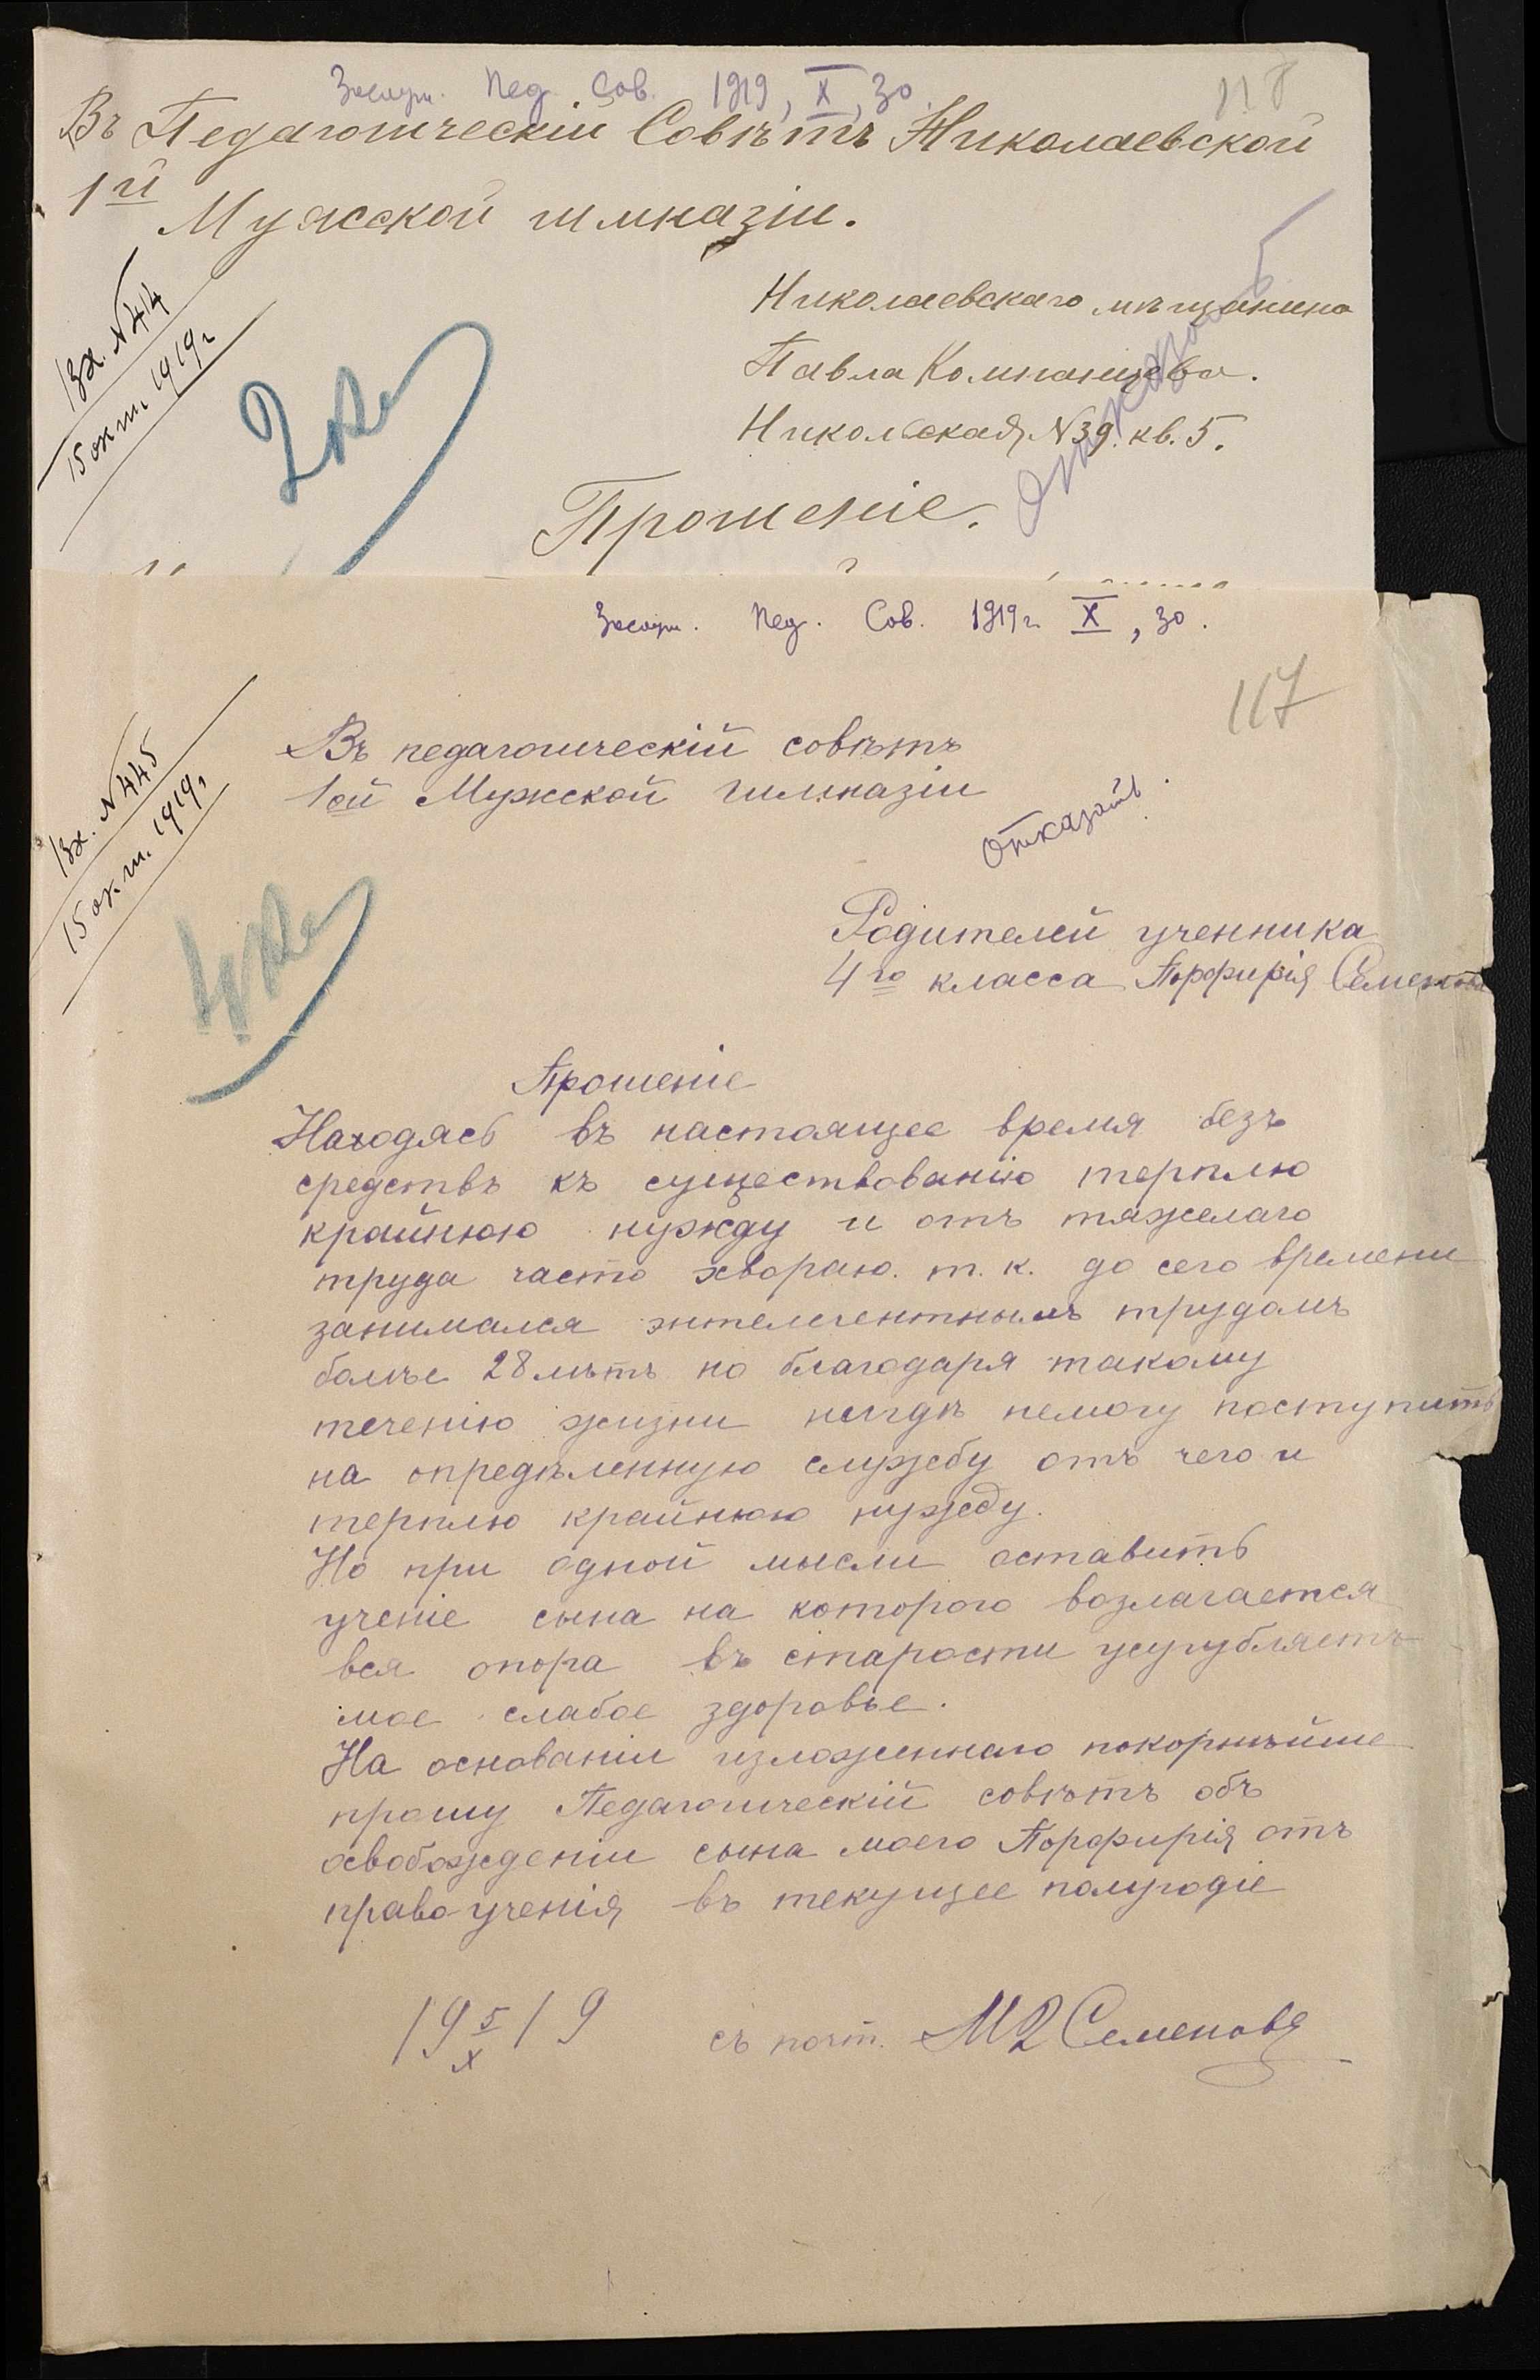 Засѣд. Пед. Сов. 1919, X, 30.
118
Въ Педагогическій Совѣтъ Николаевской
1й Мужской гимназіи.
Вх. N 444
15 окт. 1919 г
Николаевскаго мѣщанина
Павла Компанцева.
Никольская N 39. кв. 5.
отказать
Прошеніе.
Засѣд. Пед. Сов. 1919 г. X, 30.
117
Вх. N 445
15 окт. 1919 г
Въ педагогическій совѣтъ
1ой Мужской гимназіи
отказать.
Родителей ученника
4го класса Порфирія Семенова
Прошеніе
Находясь въ настоящее время безъ
средствъ къ существованію терплю
крайнюю нужду и отъ тяжелаго
труда часто хвораю. т. к. до сего времени
занимался энтелегентнымъ трудомъ
болѣе 28 лѣтъ но благодаря такому
теченію жизни нигдѣ немогу поступить
на опредѣленную службу отъ чего и
терплю крайнюю нужду.
Но при одной мысли оставить
ученіе сына на которого возлагается
вся опора въ старости усугубляетъ
мое слабое здоровье.
На основаніи изложеннаго покорнѣйше
прошу Педагогическій совѣтъ объ
освобожденіи сына моего Порфирія отъ
право ученія въ текущее полугодіе
19 5/X 19 съ почт. М Семеновъ